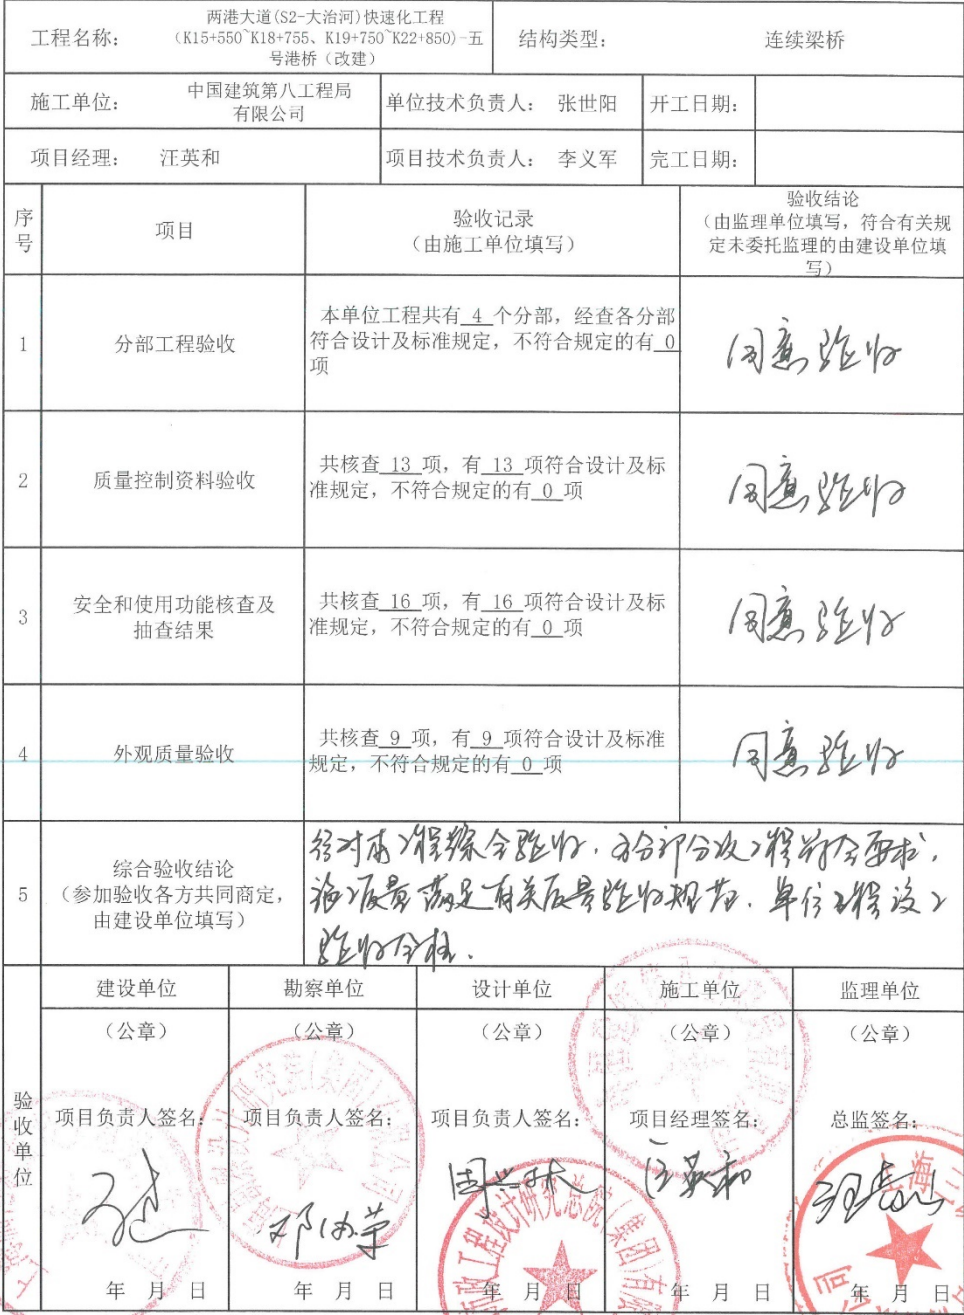 两港大道(S2-大治河)快速化工程
工程名称：
（K15+550~K18+755、K19+750~K22+850)-五
号港桥（改建）
结构类型：
连续梁桥
施工单位：
中国建筑第八工程局
有限公司
单位技术负责人： 张世阳
开工日期：
项目经理： 汪英和
项目技术负责人： 李义军
完工日期：
序
号
项目
验收记录
（由施工单位填写）
验收结论
（由监理单位填写，符合有关规
定未委托监理的由建设单位填
写）
1
分部工程验收
本单位工程共有 4 个分部，经查各分部
符合设计及标准规定，不符合规定的有 0
项
同意验收
2
质量控制资料验收
共核查 13 项，有 13 项符合设计及标
准规定，不符合规定的有 0 项
同意验收
3
安全和使用功能核查及
抽查结果
共核查 16 项，有 16 项符合设计及标
准规定，不符合规定的有 0 项
同意验收
4
外观质量验收
共核查 9 项，有 9 项符合设计及标准
规定，不符合规定的有 0 项
同意验收
5
综合验收结论
（参加验收各方共同商定，
由建设单位填写）
经对本工程综合验收，各分部分项工程符合要求，
施工质量满足有关质量验收规范，单位工程竣工
验收合格.
验
收
单
位
建设单位
勘察单位
设计单位
施工单位
监理单位
（公章）
（公章）
（公章）
（公章）
（公章）
项目负责人签名：
项目负责人签名：
项目负责人签名：
项目经理签名：
总监签名：
汪英和
年 月 日
年 月 日
年 月 日
年 月 日
年 月 日